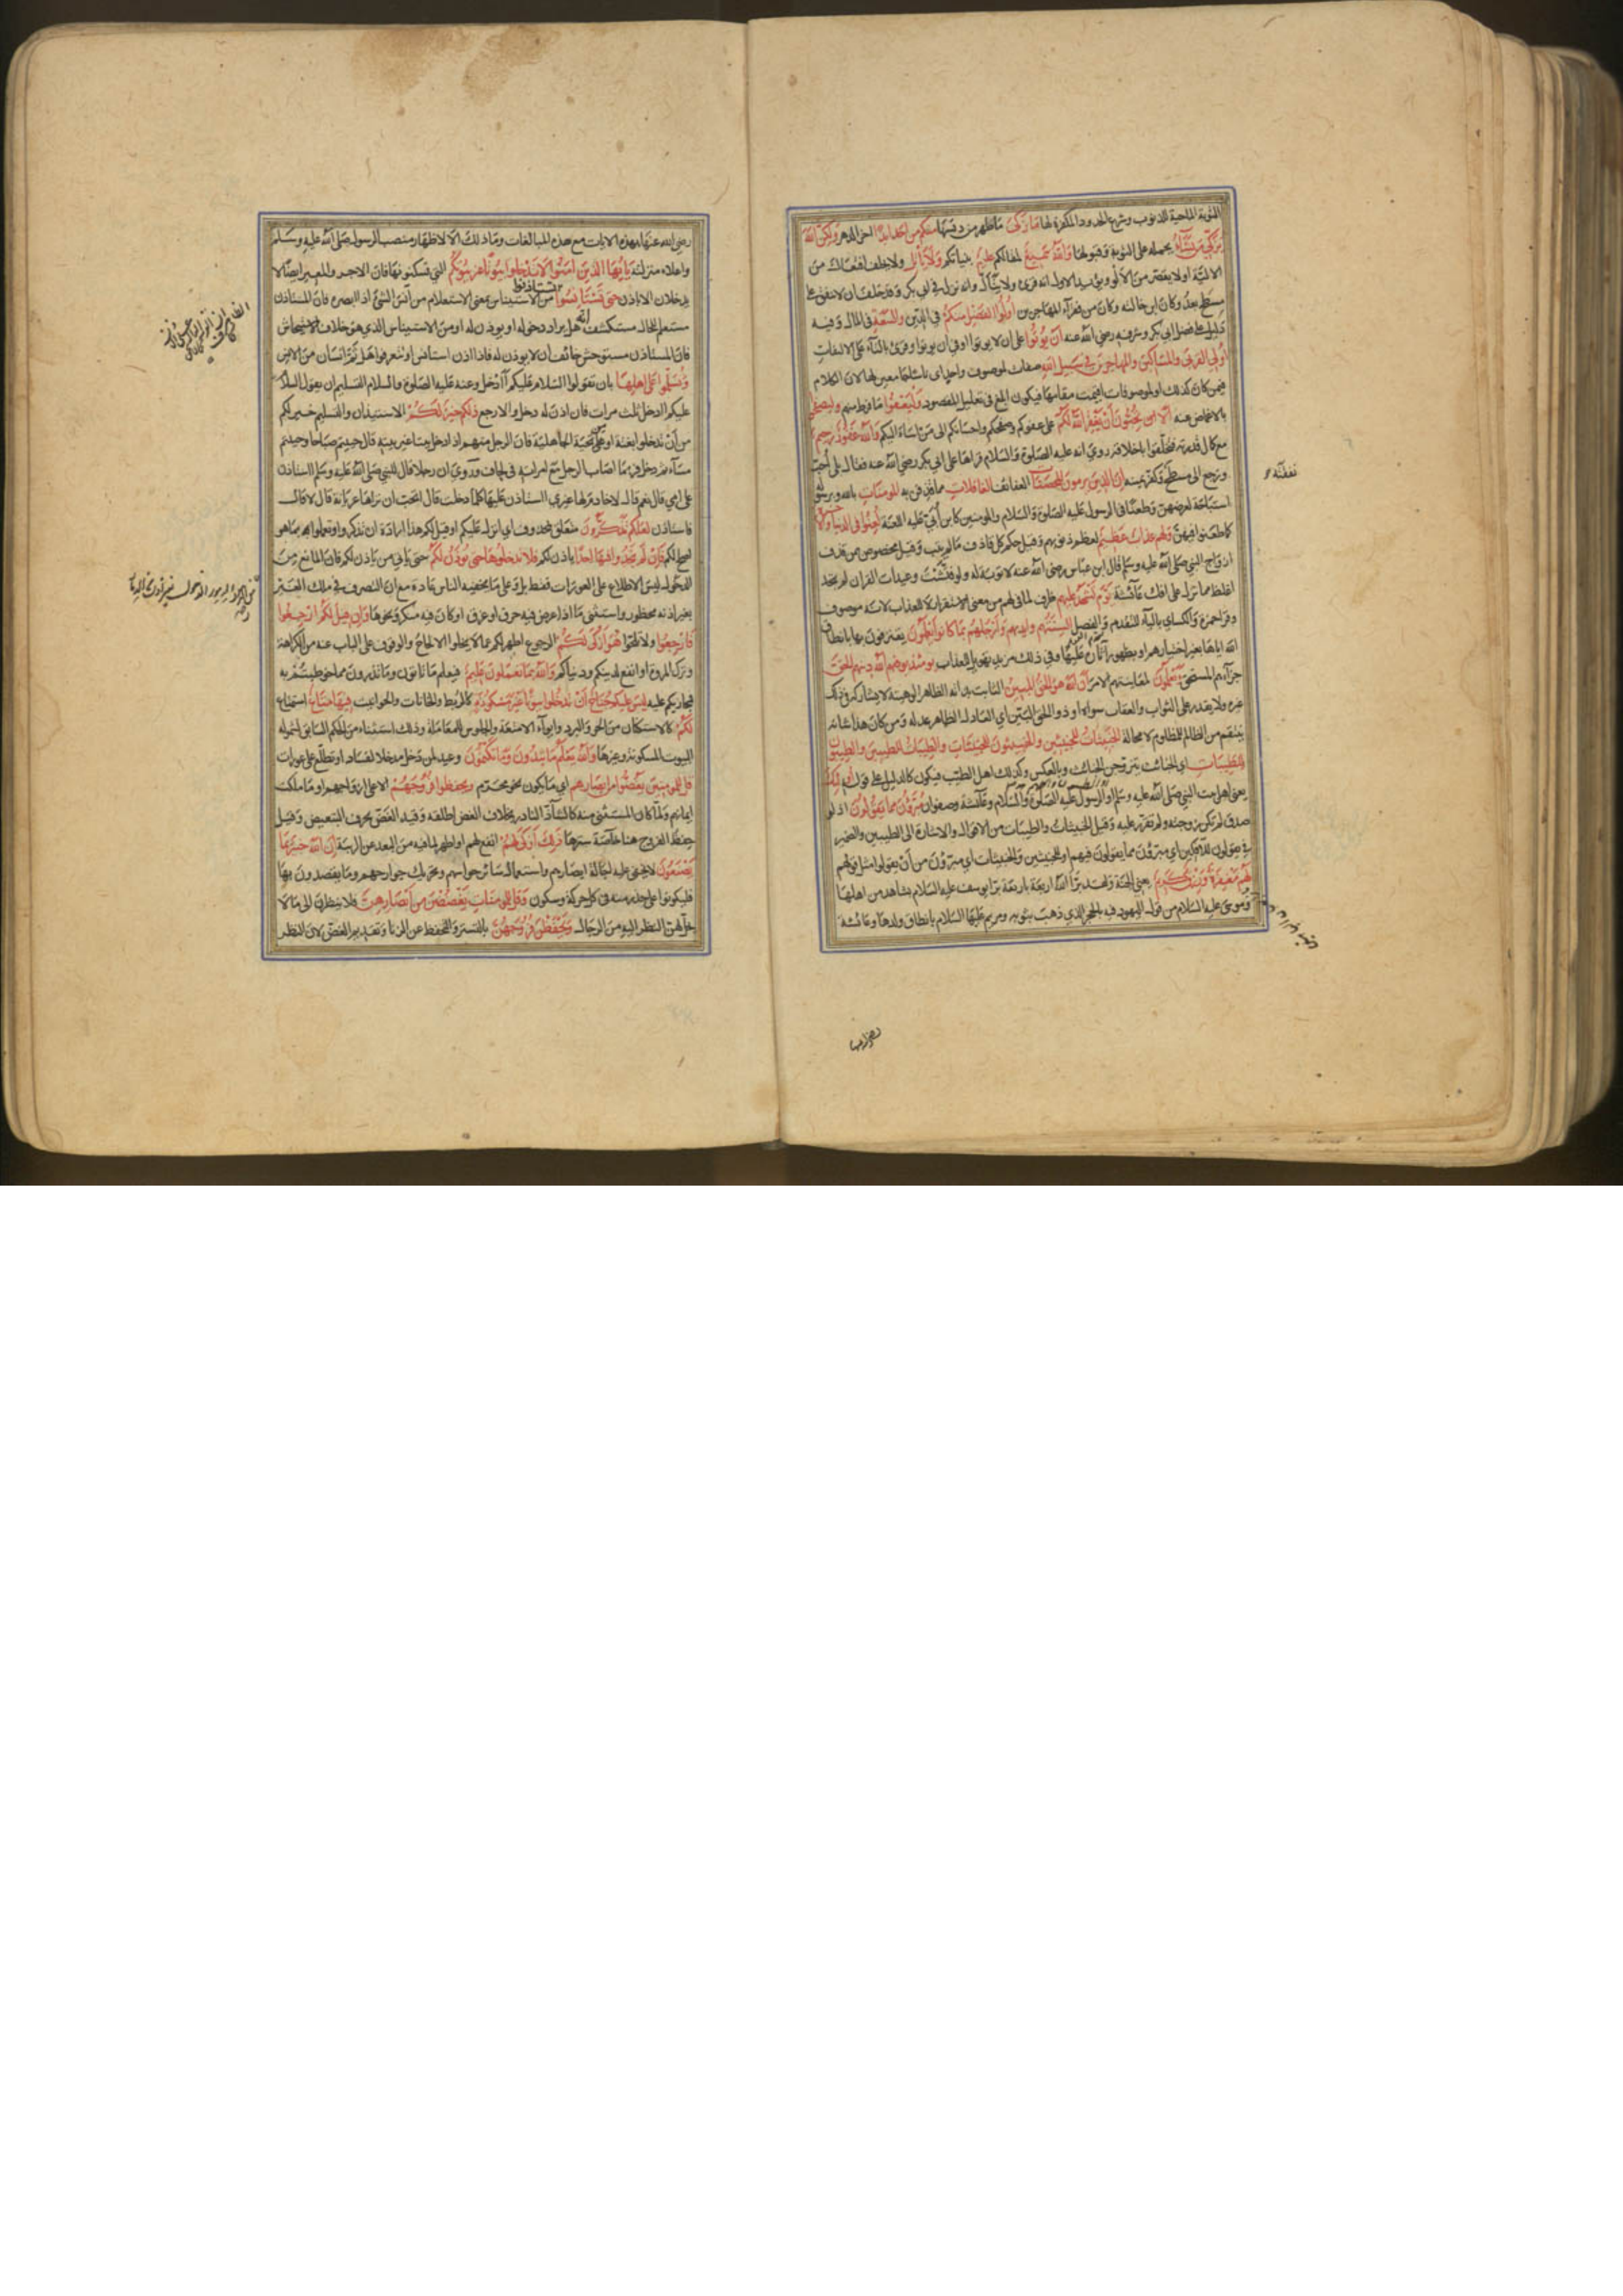 التوبة الماحية للذنوب وشرع الحدود المكفرة لها ما زكى ما طهر من دنسها منكم من احد ابدا اخر الدهر ولكن الله
يزكي من يشاء بحمله على التوبة وقبولها والله سميع لمقالكم عليم بنياتكم ولا ياتل ولا يحلف افتعال من
الالية او لا يقصر من الالو ويؤيد الاول انه قرئ ولا يتال وانه نزل في ابي بكر وقد حلف ان لا ينفق على
مسطح بعد وكان ابن خالته وكان من فقراء المهاجرين اولوا الفضل منكم في الدين والسعة في المال وفيه
دليل على فضل ابي بكر وشرفه رضي الله عنه ان يؤتوا على ان لا يوتوا او في ان يوتوا وقرئ بالتاء على الالتفات
اولي القربى والمساكين والمهاجرين في سبيل الله صفات لموصوف واحد اي ناسا جامعين لها لان الكلام
فيمن كان كذلك او لموصوفات اقيمت مقامها فيكون ابلغ في تعليل المقصود وليعفوا ما فرط منهم وليصفحوا
بالاغماض عنه الا تحبون ان يغفر الله لكم على عفوكم وصفحكم واحسانكم الى من اساء اليكم والله غفور رحيم
مع كمال قدرته فتخلقوا باخلاقه روي انه عليه الصلوة والسلام قراها على ابي بكر رضي الله عنه فقال بلى احب
ورجع الى مسطح وكفر يمينه ان الذين يرمون المحصنات العفائف الغافلات مما قذفن به المومنات بالله وبرسوله
استباحة لعرضهن وطعنا في الرسول عليه الصلوة والسلام والمومنين كابن ابي عليه اللعنة لعنوا في الدنيا والاخرة
كما طعنوا فيهن ولهم عذاب عظيم لعظم ذنوبهم وقيل حكم كل قاذف ما لم يتب وقيل مخصوص بمن قذف
ازواج النبي صلى الله عليه وسلم قال ابن عباس رضي الله عنه لا توبة له ولو فتشت وعيدات القران لم تجد
اغلظ مما نزل على افك عائشة يوم تشهد عليهم ظرف لما في لهم من معنى الاستقرار لا للعذاب لانه موصوف
وقرا حمزة والكسائي بالياء للتقدم والفصل السنتهم وايديهم وارجلهم بما كانوا يعملون يعترفون بها بانطاق
الله اياها بغير اختيارهم او بظهور اثاره عليها وفي ذلك مزيد تهويل للعذاب يومئذ يوفيهم الله دينهم الحق
جزاءهم المستحق ويعلمون لمعاينتهم الامر ان الله هو الحق المبين الثابت بذاته الظاهر الوهيته لا يشاركه في ذلك
غيره ولا يقدر على الثواب والعقاب سواه او ذو الحق البين اي العادل الظاهر عدله ومن كان هذا شانه
ينتقم من الظالم للمظلوم لا محالة الخبيثات للخبيثين والخبيثون للخبيثات والطيبات للطيبين والطيبون
للطيبات اي الخبائث يتزوجن الخباث وبالعكس وكذلك اهل الطيب فيكون كالدليل على قوله اولئك
يعني اهل بيت النبي صلى الله عليه وسلم او الرسول عليه الصلوة والسلام وعائشة وصفوان مبرؤن مما يقولون اذ لو
صدق لم تكن زوجته ولم تقرر عليه وقيل الخبيثات والطيبات من الاقوال والاشارة الى الطيبين والضمير
في يقولون للآفكين اي مبرؤن مما يقولون فيهم او للخبيثين والخبيثات اي مبرؤن من ان يقولوا مثل قولهم
لهم مغفرة ورزق كريم يعني الجنة ولقد برا الله اربعة باربعة برا يوسف عليه السلام بشاهد من اهلها
وموسى عليه السلام من قول اليهود فيه بالحجر الذي ذهب بثوبه ومريم عليها السلام بانطاق ولدها وعائشة
رضي الله عنها
رضي الله عنها بهذه الايات مع هذه المبالغات وما ذلك الا لاظهار منصب الرسول صلى الله عليه وسلم
واعلاء منزلته يا ايها الذين امنوا لا تدخلوا بيوتا غير بيوتكم التي تسكنونها فان الاجر والمعير ايضا لا
يدخلان الا باذن حتى تستانسوا تستاذنوا من الاستيناس بمعنى الاستعلام من آنس الشئ اذا ابصره فان المستاذن
مستعلم للحال مستكشف انه هل يراد دخوله او يوذن له او من الاستيناس الذي هو خلاف الاستيحاش
فان المستاذن مستوحش خائف ان لا يوذن له فاذا اذن استانس او تتعرفوا هل ثم انسان من الانس
وتسلموا على اهلها بان تقولوا السلام عليكم اادخل وعنه عليه الصلوة والسلام التسليم ان يقول السلام
عليكم اادخل ثلث مرات فان اذن له دخل والا رجع ذلكم خير لكم الاستيذان والتسليم خير لكم
من ان تدخلوا بغتة او على تحية الجاهلية فان الرجل منهم اذا دخل بيتا غير بيته قال حييتم صباحا وحييتم
مساء ودخل فربما اصاب الرجل مع امراته في لحاف وروي ان رجلا قال للنبي صلى الله عليه وسلم ااستاذن
على امي قال نعم قال لا خادم لها غيري ااستاذن عليها كلما دخلت قال اتحب ان تراها عريانة قال لا قال
فاستاذن لعلكم تذكرون متعلق بمحذوف اي انزل عليكم او قيل لكم هذا ارادة ان تذكروا وتعملوا بما هو
اصلح لكم فان لم تجدوا فيها احدا ياذن لكم فلا تدخلوها حتى يوذن لكم حتى ياتي من ياذن لكم فان المانع من
الدخول ليس الاطلاع على العورات فقط بل وعلى ما يخفيه الناس عادة مع ان التصرف في ملك الغير
بغير اذنه محظور واستثنى ما اذا عرض فيه حرق او غرق او كان فيه منكر ونحوها وان قيل لكم ارجعوا
فارجعوا ولا تلحوا هو ازكى لكم الرجوع اطهر لكم عما لا يخلوا الالحاح والوقوف على الباب عنه من الكراهة
وترك المروة او انفع لدينكم ودنياكم والله بما تعملون عليم فيعلم ما تاتون وما تذرون مما خوطبتم به
فيجازيكم عليه ليس عليكم جناح ان تدخلوا بيوتا غير مسكونة كالربط والخانات والحوانيت فيها متاع استمتاع
لكم كالاستكنان من الحر والبرد وايواء الامتعة والجلوس للمعاملة وذلك استثناء من الحكم السابق لشموله
البيوت المسكونة وغيرها والله يعلم ما تبدون وما تكتمون وعيد لمن دخل مدخلا لفساد او تطلع على عورات
قل للمومنين يغضوا من ابصارهم اي ما يكون نحو محرم ويحفظوا فروجهم الا على ازواجهم او ما ملكت
ايمانهم ولما كان المستثنى منه كالشاذ النادر بخلاف الغض اطلقه وقيد الغض بحرف التبعيض وقيل
حفظ الفروج هنا خاصة سترها ذلك ازكى لهم انفع لهم او اطهر لما فيه من البعد عن الريبة ان الله خبير بما
يصنعون لا يخفى عليه اجالة ابصارهم واستعمال سائر حواسهم وتحريك جوارحهم وما يقصدون بها
فليكونوا على حذر منه في كل حركة وسكون وقل للمومنات يغضضن من ابصارهن فلا ينظرن الى ما لا
يحل لهن النظر اليه من الرجال ويحفظن فروجهن بالتستر والتحفظ عن الزنا وتقديم الغض لان النظر